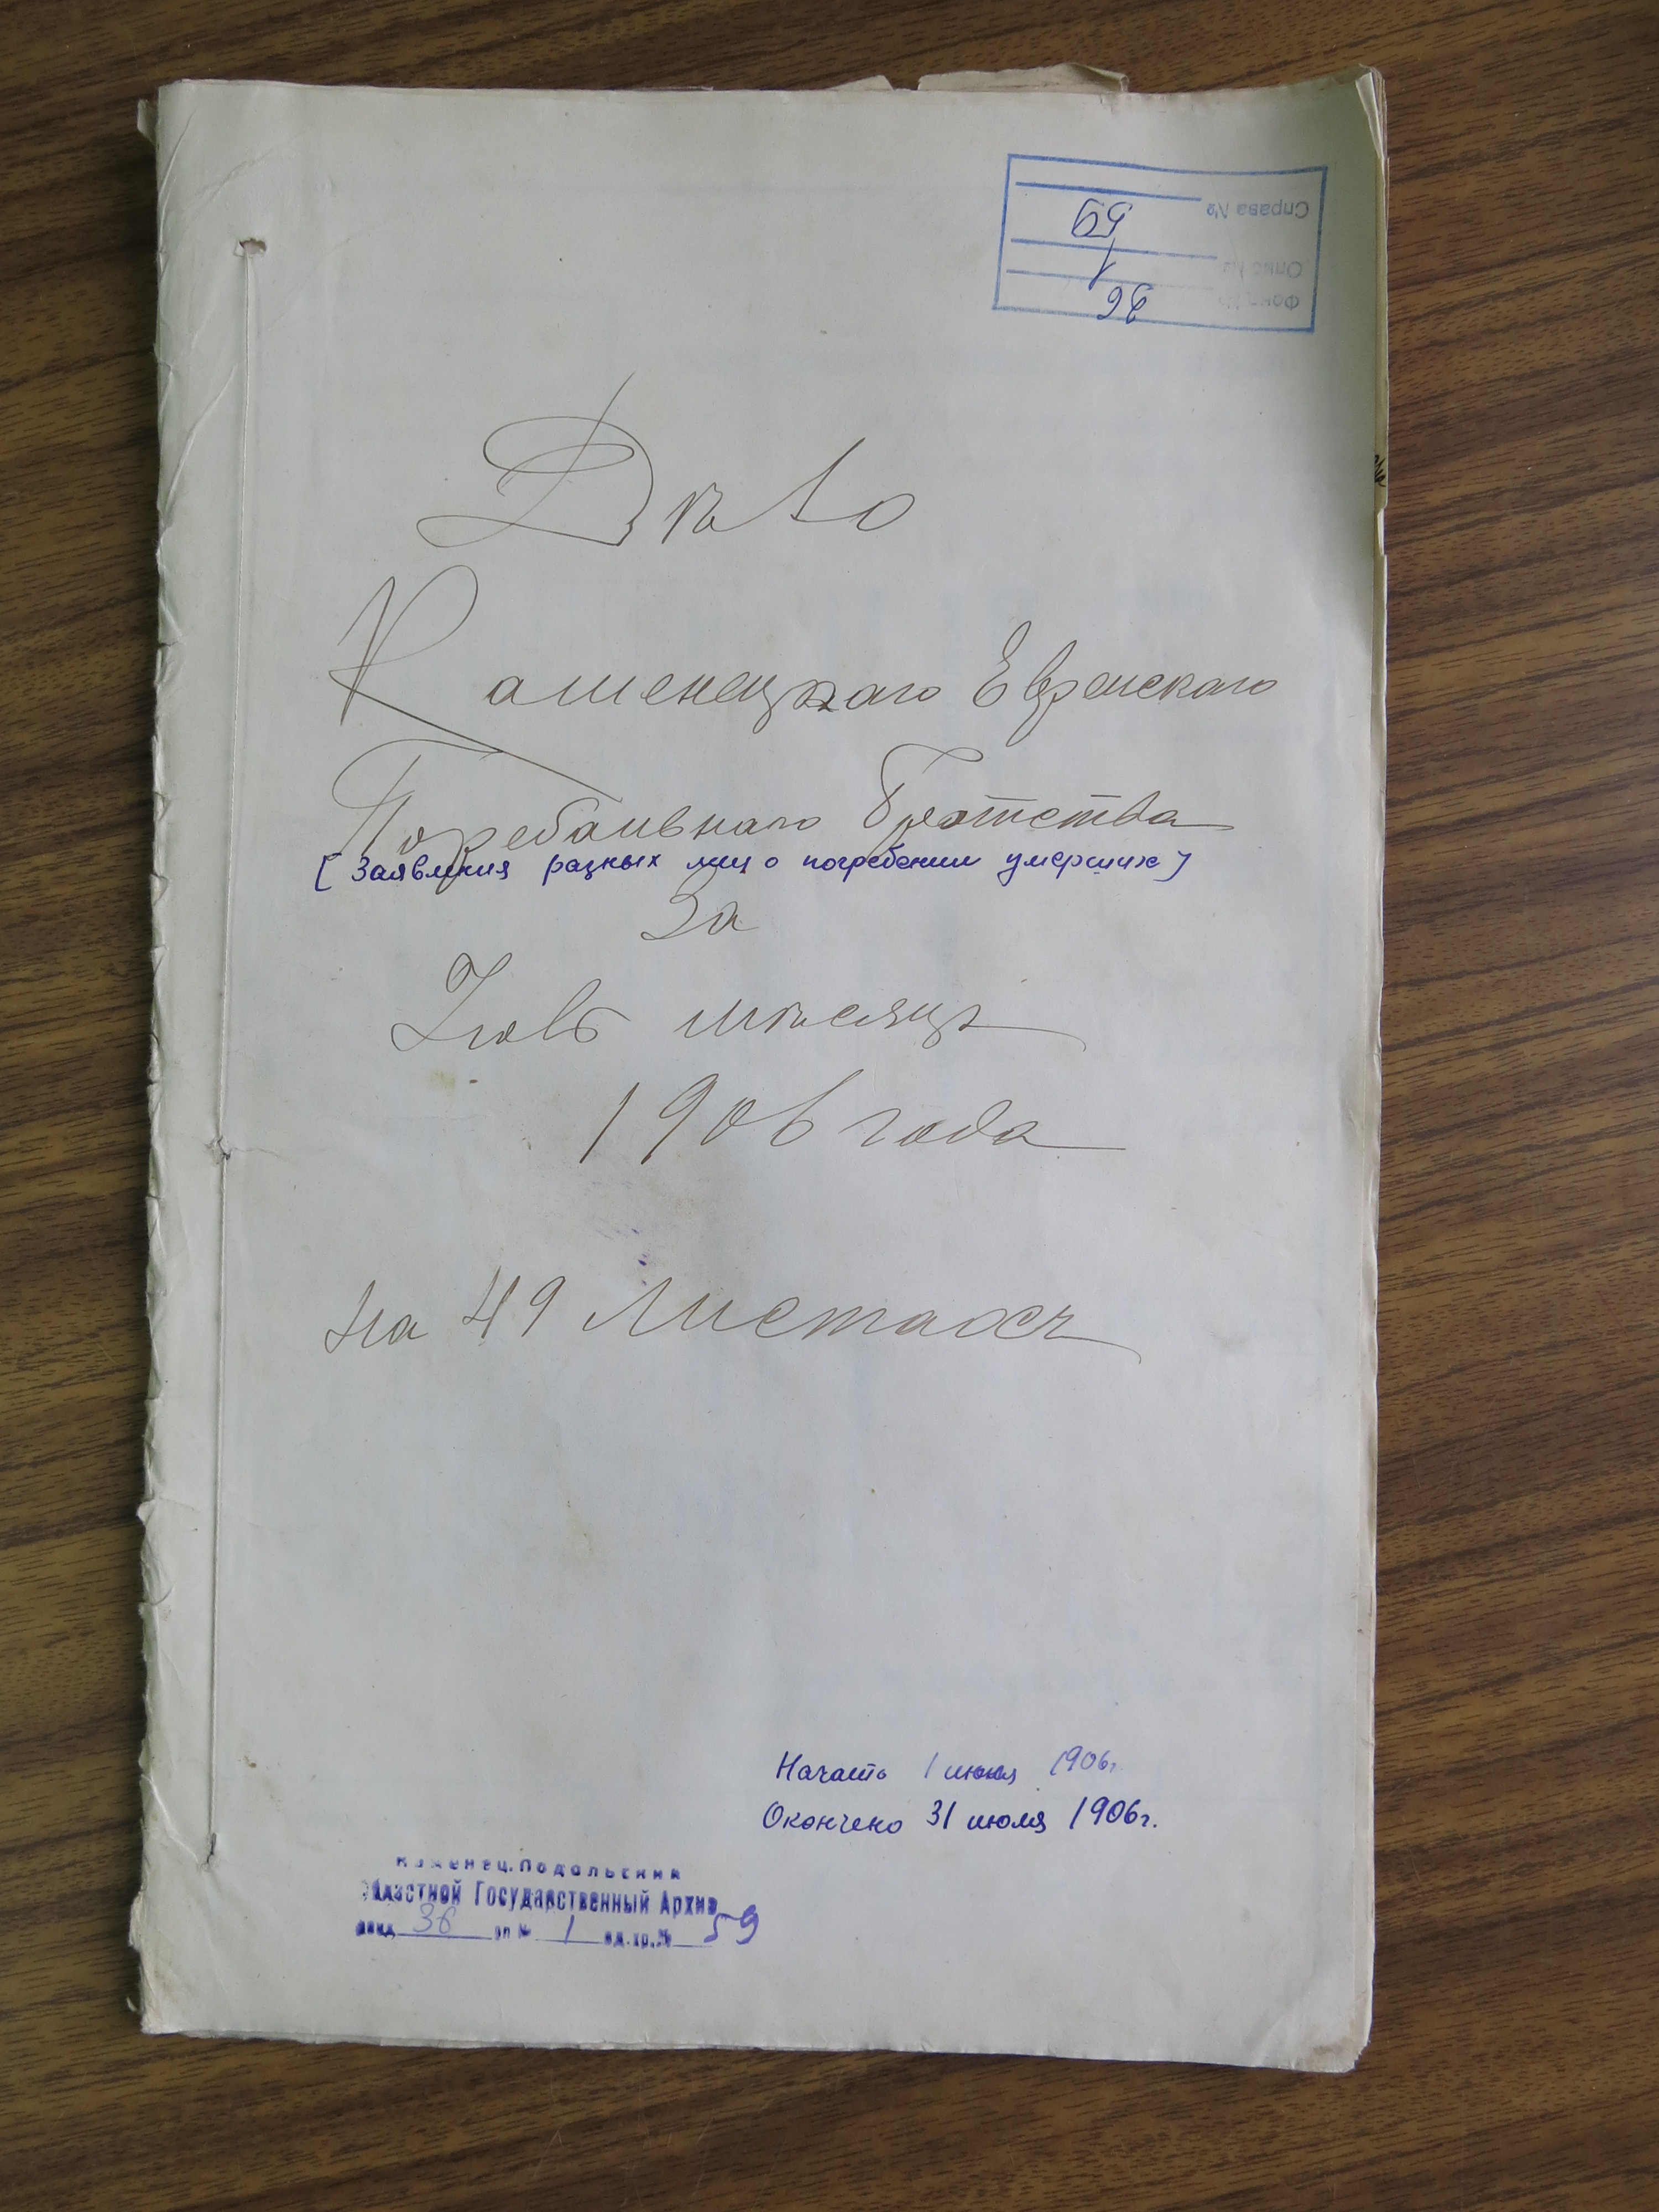 Справа № 59
Опис № 1
Фонд № 36
Дѣло
Каменецкаго Еврейскаго
Погребальнаго Братства
[Заявления разных лиц о погребении умерших]
За
Іюль мѣсяцъ
1906 года
на 49 Листахъ
Начато 1 июля 1906г.
Окончено 31 июля 1906г.
Каменец.Подольский
Областной Государственный Архив
фонд 36 оп № 1 ед.хр.№ 59